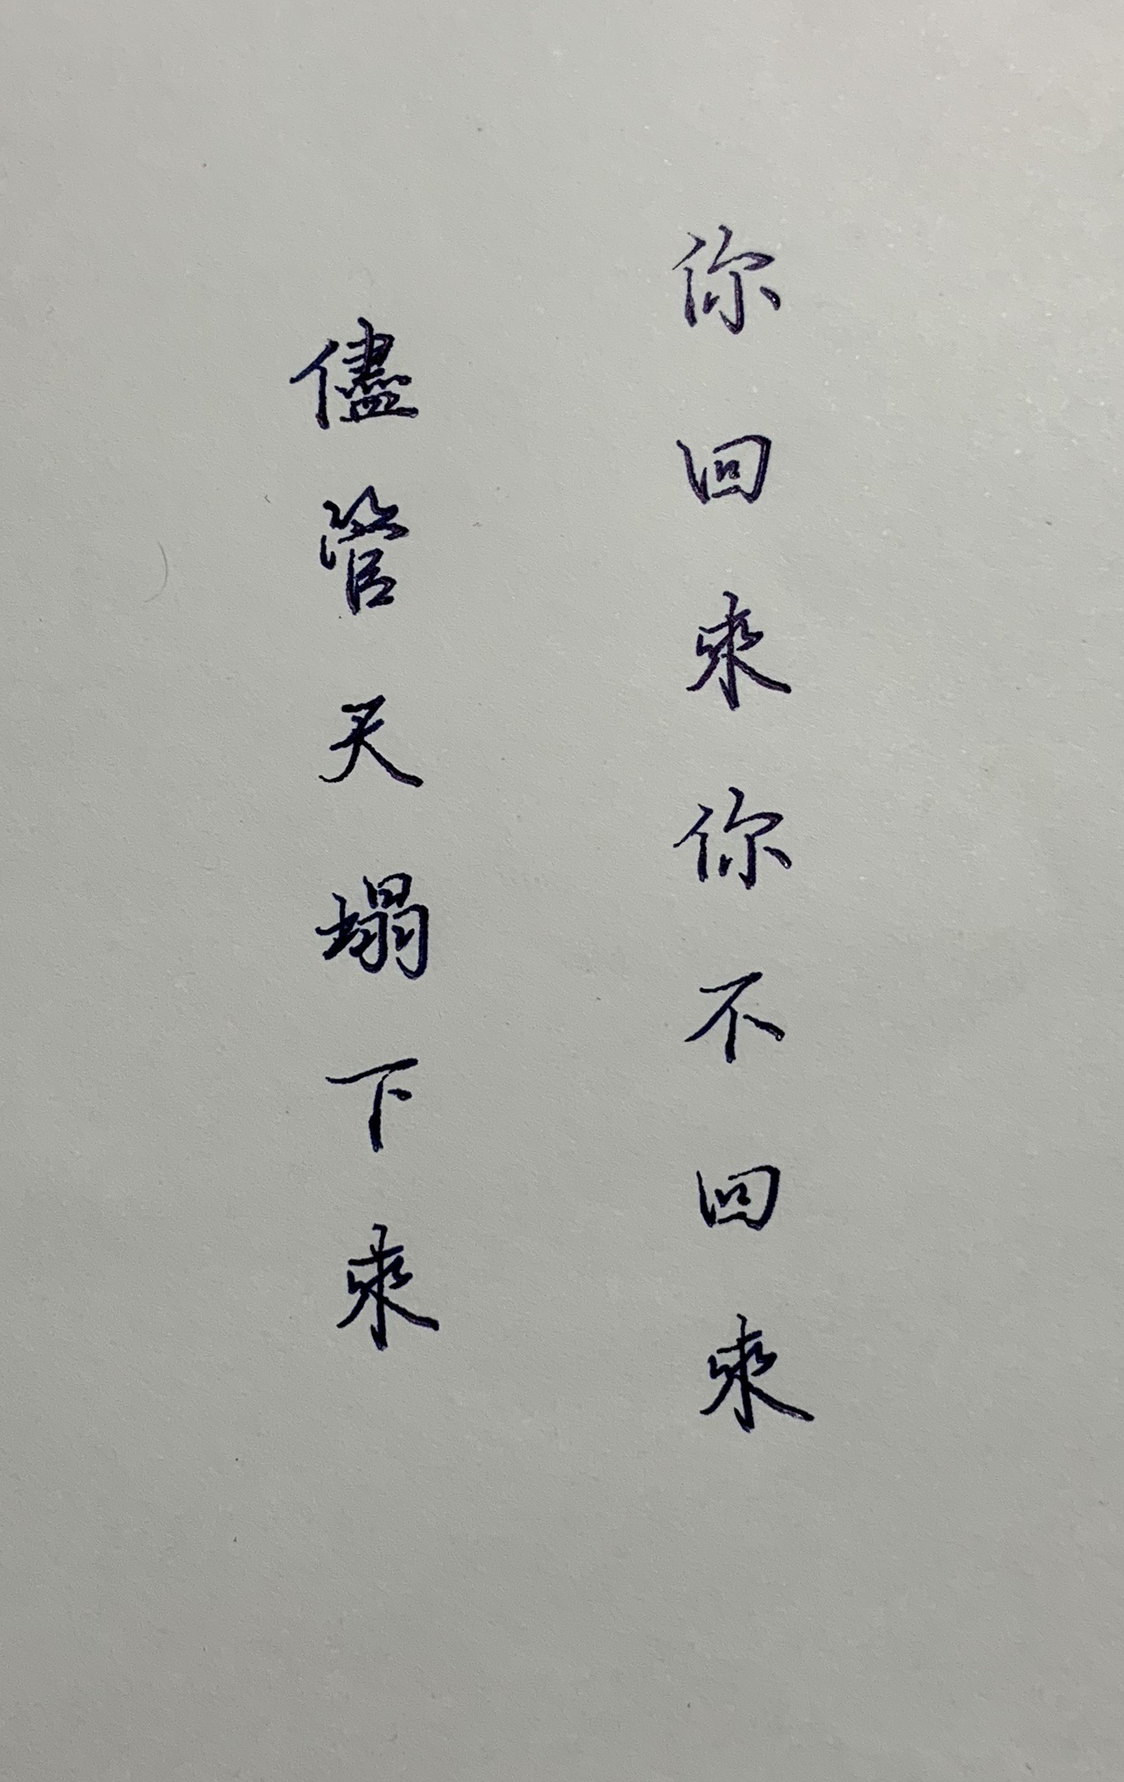 你回來你不回來
儘管天塌下來